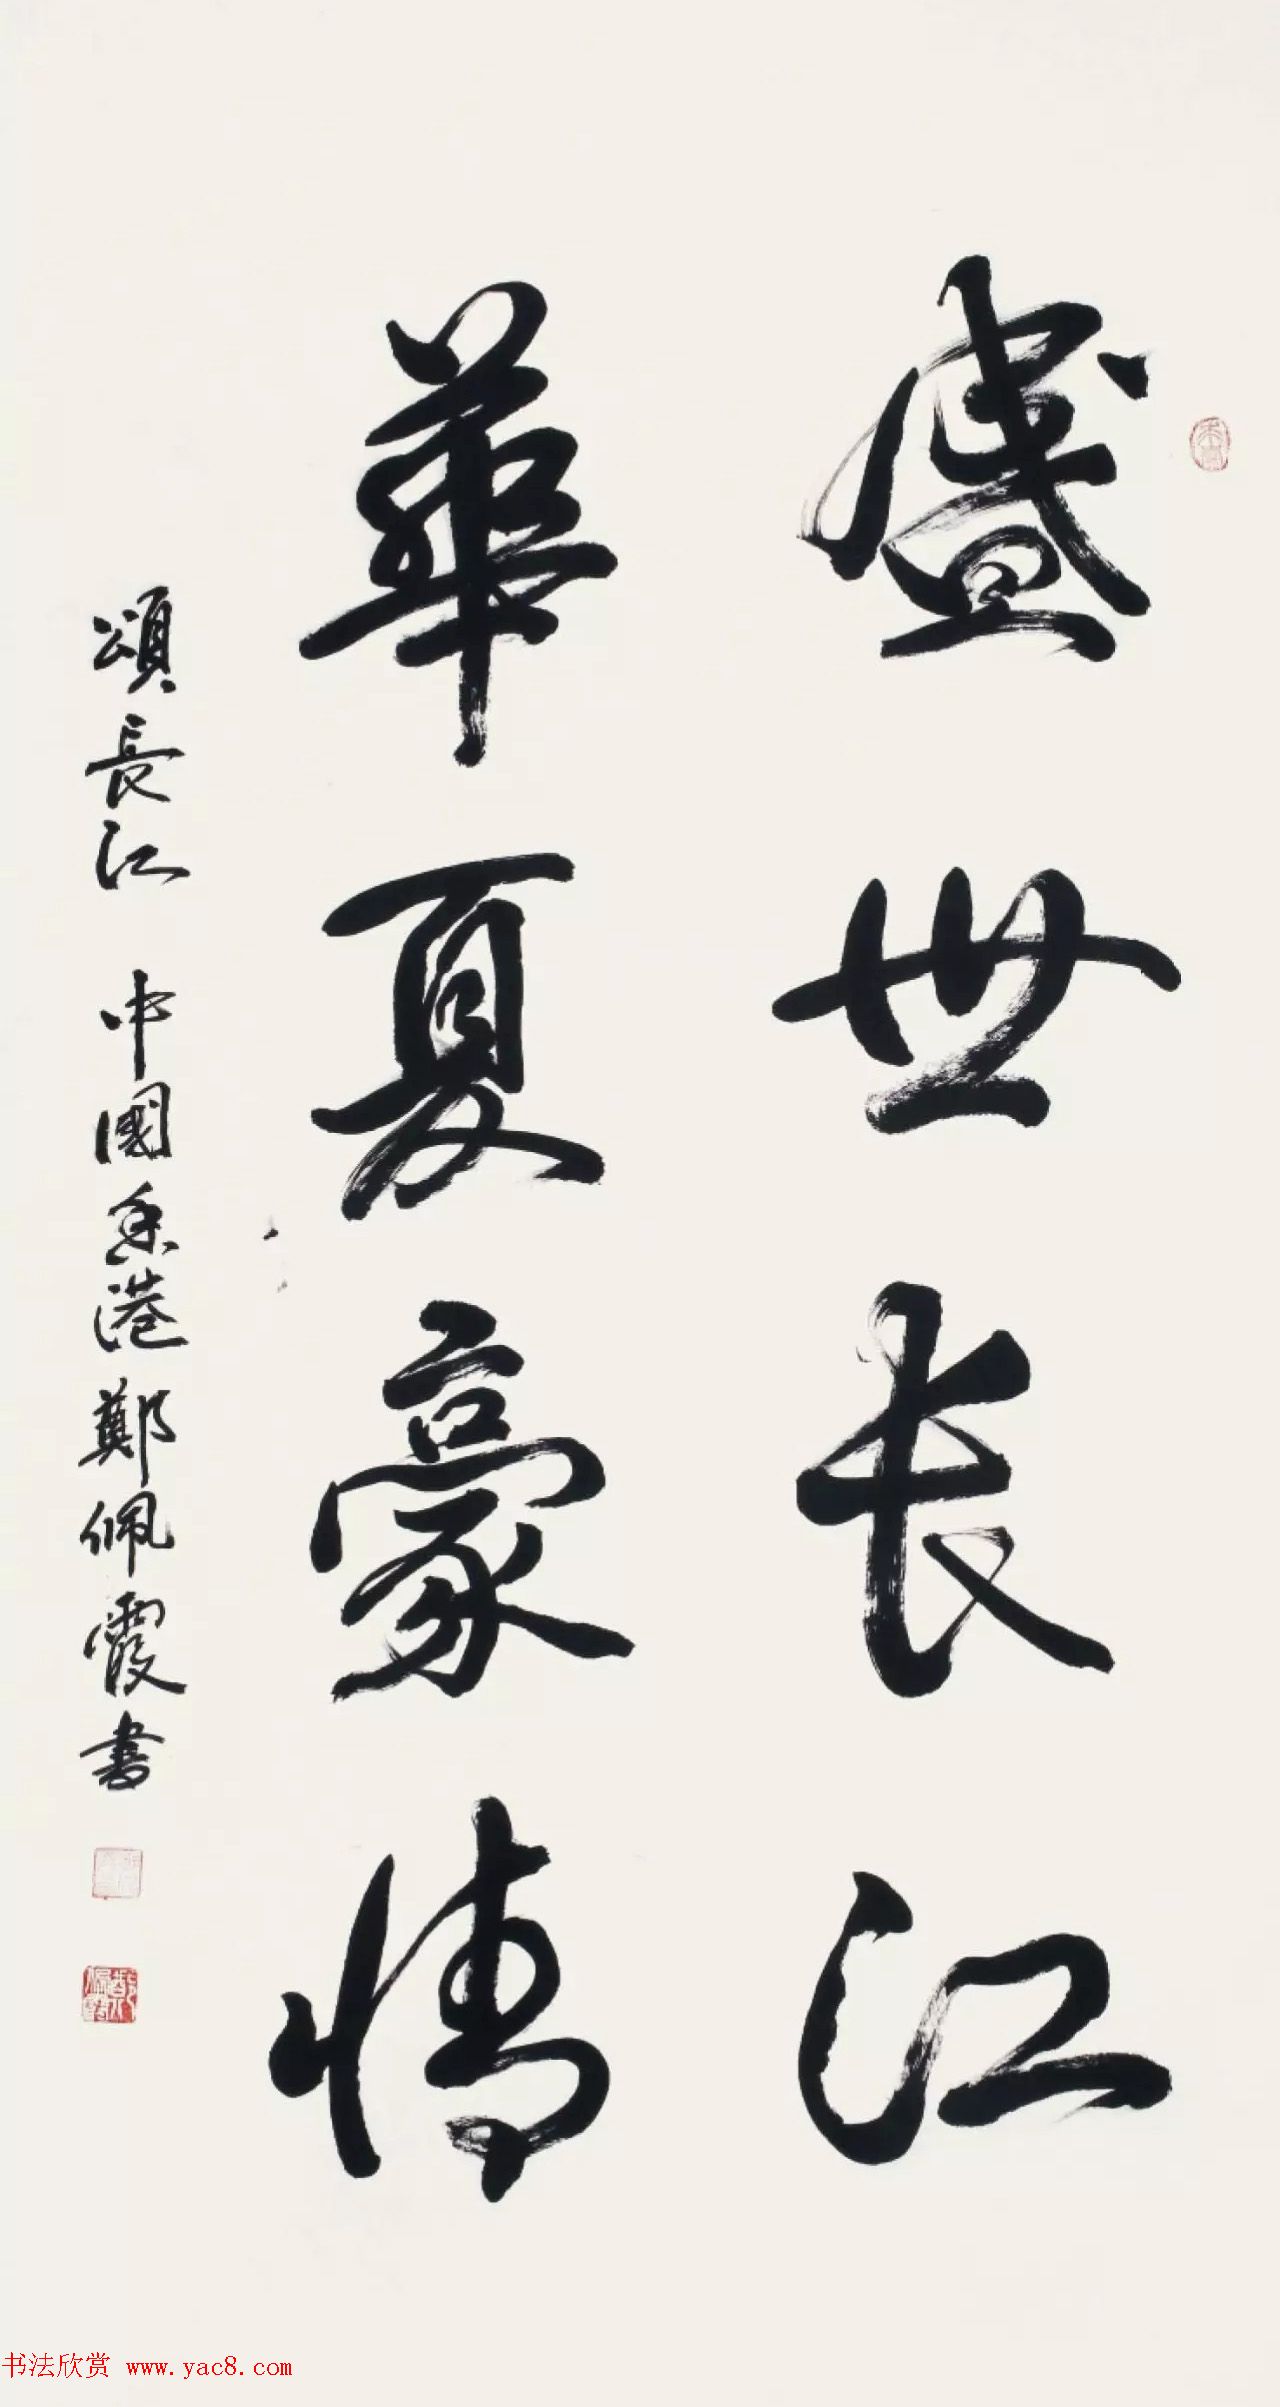 盛世长江
華夏豪情
頌長江 中國香港鄭佩霞書
鄭佩霞
书法欣赏 www.yac8.com